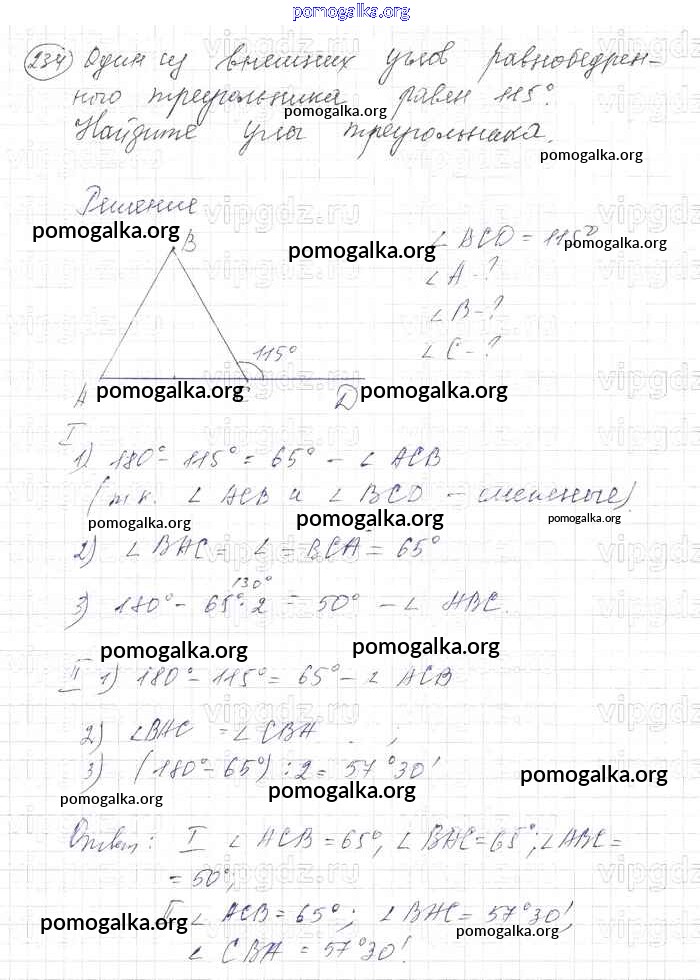 pomogalka.org
234) Один из внешних углов равнобедрен-
ного треугольника равен 115°.
pomogalka.org
Найдите углы треугольника.
pomogalka.org
Решение
vipgdz.ru
pomogalka.org
B
pomogalka.org
∠ BCD = 115°
pomogalka.org
∠ A - ?
∠ B - ?
∠ C - ?
115°
A
pomogalka.org
D
pomogalka.org
I
1) 180° - 115° = 65° - ∠ ACB
(т.к. ∠ ACB и ∠ BCD - смежные)
pomogalka.org
pomogalka.org
pomogalka.org
2) ∠ BAC = ∠ = BCA = 65°
130°
3) 180° - 65° · 2 = 50° - ∠ ABC.
pomogalka.org
pomogalka.org
II 1) 180° - 115° = 65° - ∠ ACB
vipgdz.ru
2) ∠BAC = ∠ CBA ;
3) (180° - 65°) : 2 = 57°30'
pomogalka.org
pomogalka.org
pomogalka.org
Ответ: I ∠ ACB = 65°, ∠ BAC = 65°; ∠ABC =
= 50°;
II ∠ ACB = 65°; ∠ BAC = 57°30',
pomogalka.org
pomogalka.org
∠ CBA = 57°30'.